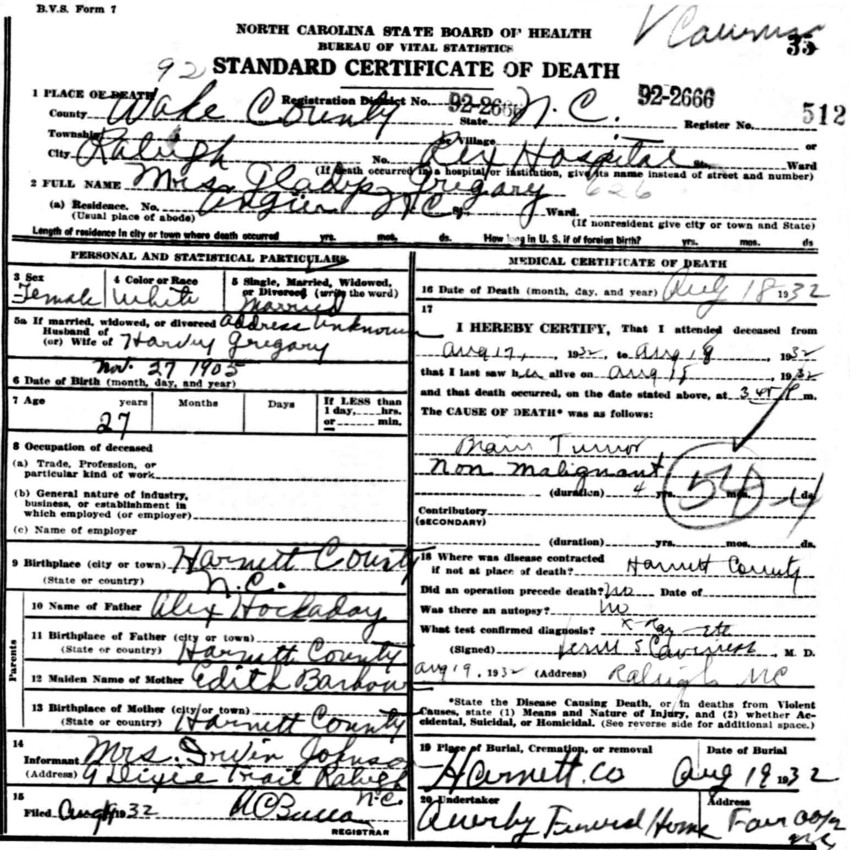 B.V.S. Form 7
NORTH CAROLINA STATE BOARD OF HEALTH
BUREAU OF VITAL STATISTICS
35
92 STANDARD CERTIFICATE OF DEATH
1 PLACE OF DEATH
Registration District No. 92-2666 92-2666
County Wake County State N.C. Register No. 512
Township or Village or
City Raleigh No. Rex Hospital St. Ward
(If death occurred in a hospital or institution, give its name instead of street and number)
2 FULL NAME Mrs. Gladys Gregary 626
(a) Residence. No. Angier N.C. Ward.
(Usual place of abode) (If nonresident give city or town and State)
Length of residence in city or town where death occurred yrs. mos. ds. How long in U.S. if of foreign birth? yrs. mos. ds
PERSONAL AND STATISTICAL PARTICULARS
3 Sex 4 Color or Race 5 Single, Married, Widowed, or Divorced (write the word)
Female White Married
5a If married, widowed, or divorced address unknown
Husband of
(or) Wife of Harvy Gregary
Nov. 27 1905
6 Date of Birth (month, day, and year)
7 Age years Months Days If LESS than 1 day, hrs. or min.
27
8 Occupation of deceased
(a) Trade, Profession, or particular kind of work
(b) General nature of industry, business, or establishment in which employed (or employer)
(c) Name of employer
9 Birthplace (city or town) Harnett County
(State or country) N.C.
Parents
10 Name of Father Alex Hockaday
11 Birthplace of Father (city or town)
(State or country) Harnett County
12 Maiden Name of Mother Edith Barbour
13 Birthplace of Mother (city or town)
(State or country) Harnett County
14
Informant Mrs. Irvin Johnson
(Address) 9 Dixie Trail Raleigh
N.C.
15
Filed Aug 19 1932
REGISTRAR
MEDICAL CERTIFICATE OF DEATH
16 Date of Death (month, day, and year) Aug 18 1932
17
I HEREBY CERTIFY, That I attended deceased from
Aug 17, 1932, to Aug 18, 1932
that I last saw her alive on Aug 18, 1932
and that death occurred, on the date stated above, at 3 45 P m.
The CAUSE OF DEATH* was as follows:
Brain Tumor
Non Malignant
54
(duration) 4 yrs. mos. ds.
Contributory
(SECONDARY)
(duration) yrs. mos. ds.
18 Where was disease contracted
if not at place of death? Harnett County
Did an operation precede death? no Date of
Was there an autopsy? no
What test confirmed diagnosis? X-Ray etc
(Signed) S Caviness, M. D.
Aug 19, 1932 (Address) Raleigh NC
*State the Disease Causing Death, or in deaths from Violent
Causes, state (1) Means and Nature of Injury, and (2) whether Ac-
cidental, Suicidal, or Homicidal. (See reverse side for additional space.)
19 Place of Burial, Cremation, or removal Date of Burial
Harnett. Co Aug 19 1932
20 Undertaker Address
Funeral Home
N.C.